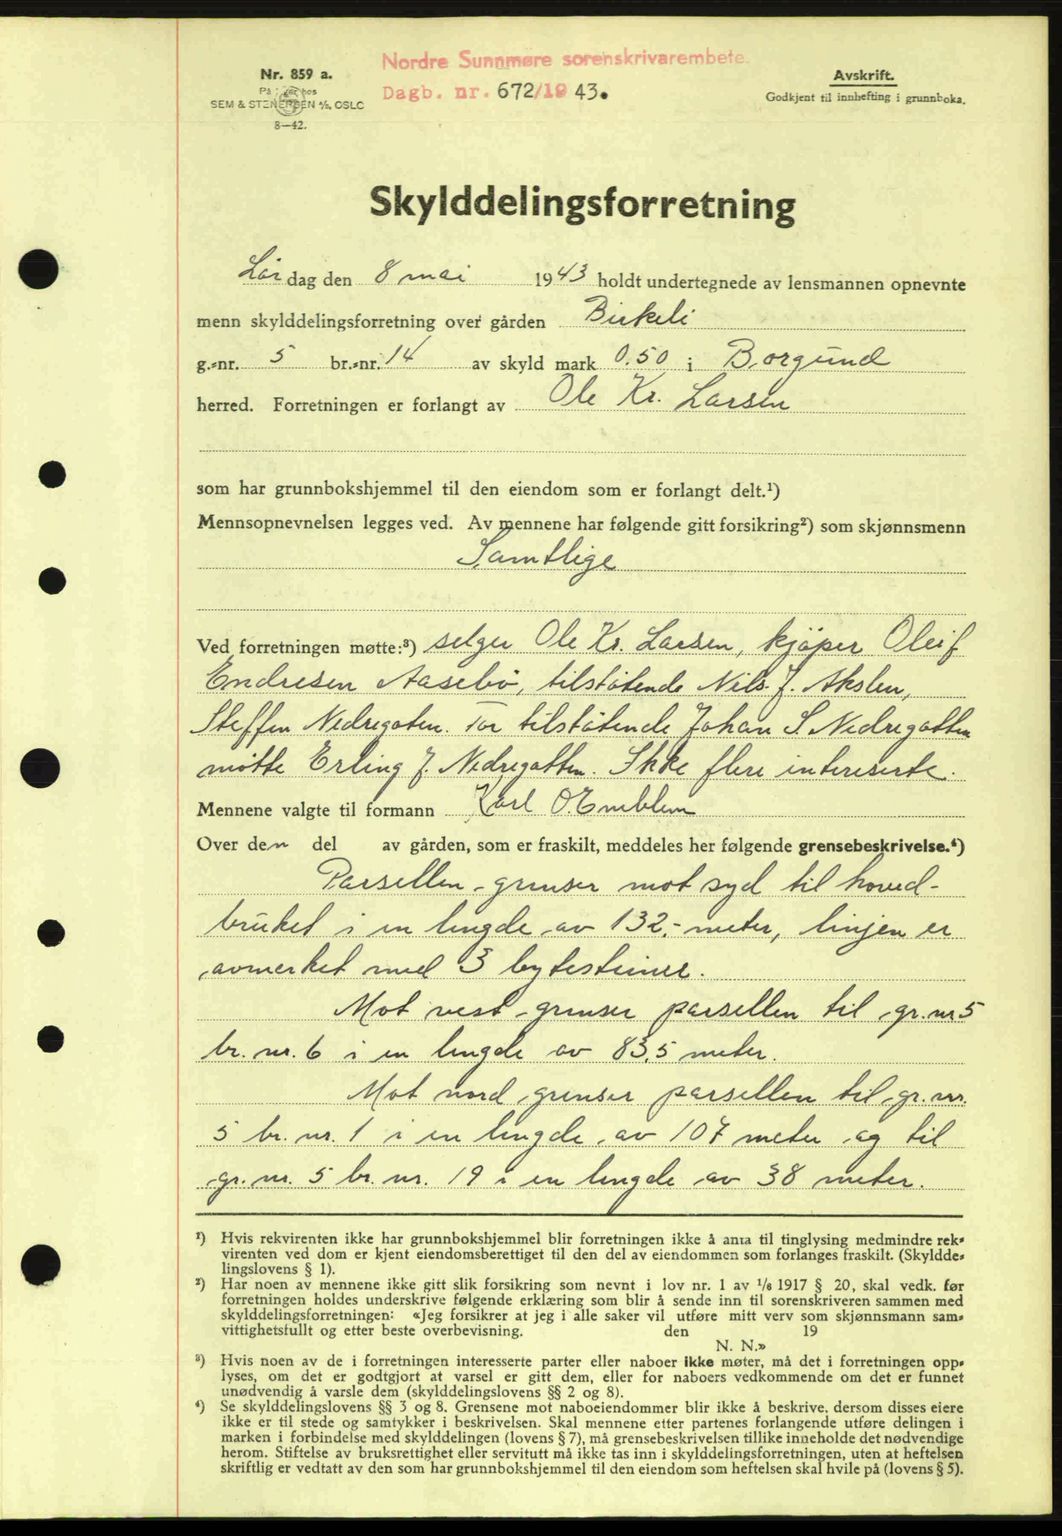 Nordre Sunnmøre sorenskrivarembete
Dagb. nr. 672/1943.
Nr. 859 a.
På lager hos
SEM & STENERSEN A/S, OSLO
8—42.
Avskrift.
Godkjent til innhefting i grunnboka.
Skylddelingsforretning
Lør dag den 8 mai 1943 holdt undertegnede av lensmannen opnevnte
menn skylddelingsforretning over gården Birkeli
g.-nr. 5 br.-nr. 14 av skyld mark 0.50 i Borgund
herred. Forretningen er forlangt av Ole Kr. Larsen
som har grunnbokshjemmel til den eiendom som er forlangt delt.¹)
Mennsopnevnelsen legges ved. Av mennene har følgende gitt forsikring²) som skjønnsmenn
Samtlige
Ved forretningen møtte:³) selger Ole Kr. Larsen, kjøper Oleif
Endresen Aasebø, tilstøtende Nils J. Akslen,
Steffen Nedregoten. For tilstøtende Johan S. Nedregotten
møtte Erling J. Nedregotten. Ikke flere intereserte.
Mennene valgte til formann Karl O. Emblem
Over den del av gården, som er fraskilt, meddeles her følgende grensebeskrivelse.⁴)
Parsellen grenser mot syd til hoved-
bruket i en lengde av 132,- meter, linjen er
avmerket med 3 bytesteiner.
Mot vest grenser parsellen til gr. nr 5
br. nr. 6 i en lengde av 83,5 meter.
Mot nord grenser parsellen til gr. nr.
5 br. nr. 1 i en lengde av 107 meter og til
gr. nr. 5 br. nr. 19 i en lengde av 38 meter.
¹) Hvis rekvirenten ikke har grunnbokshjemmel blir forretningen ikke å anta til tinglysing medmindre rek-
virenten ved dom er kjent eiendomsberettiget til den del av eiendommen som forlanges fraskilt. (Skyldde-
lingslovens § 1).
²) Har noen av mennene ikke gitt slik forsikring som nevnt i lov nr. 1 av 1/6 1917 § 20, skal vedk. før
forretningen holdes underskrive følgende erklæring som blir å sende inn til sorenskriveren sammen med
skylddelingsforretningen: «Jeg forsikrer at jeg i alle saker vil utføre mitt verv som skjønnsmann sam-
vittighetsfullt og etter beste overbevisning. den 19
N. N.»
³) Hvis noen av de i forretningen interesserte parter eller naboer ikke møter, må det i forretningen opp-
lyses, om det er godtgjort at varsel er gitt dem, eller for naboers vedkommende om det er funnet
unødvendig å varsle dem (skylddelingslovens §§ 2 og 8).
⁴) Se skylddelingslovens §§ 3 og 8. Grensene mot naboeiendommer blir ikke å beskrive, dersom disses eiere
ikke er til stede og samtykker i beskrivelsen. Skal mennene etter partenes forlangende utføre delingen i
marken i forbindelse med skylddelingen (lovens § 7), må grensebeskrivelsen tillike inneholde det nødvendige
herom. Stiftelse av bruksrettighet eller servitutt må ikke tas inn i skylddelingsforretningen, uten at heftelsen
skriftlig er vedtatt av den som har grunnbokshjemmel til den eiendom som heftelsen skal hvile på (lovens § 5).